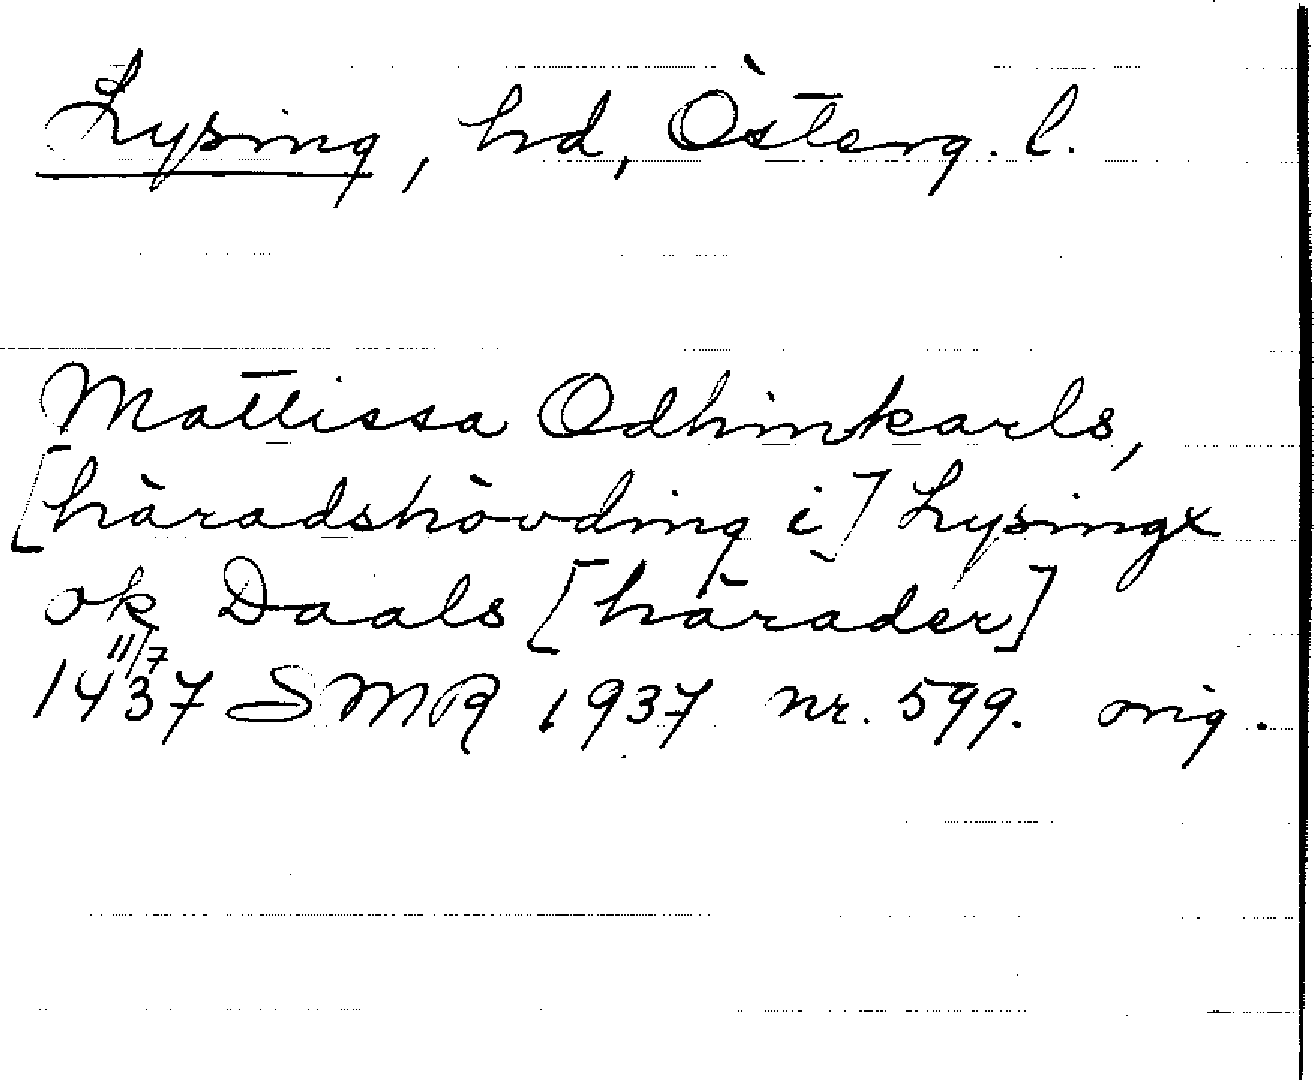 Lysing, hd, Österg. l.
Mattissa Odhinkarls,
[häradshövding i] Lysingx
ok Daals [härader]
11/7
1437 SMR 1937 nr. 599. orig.